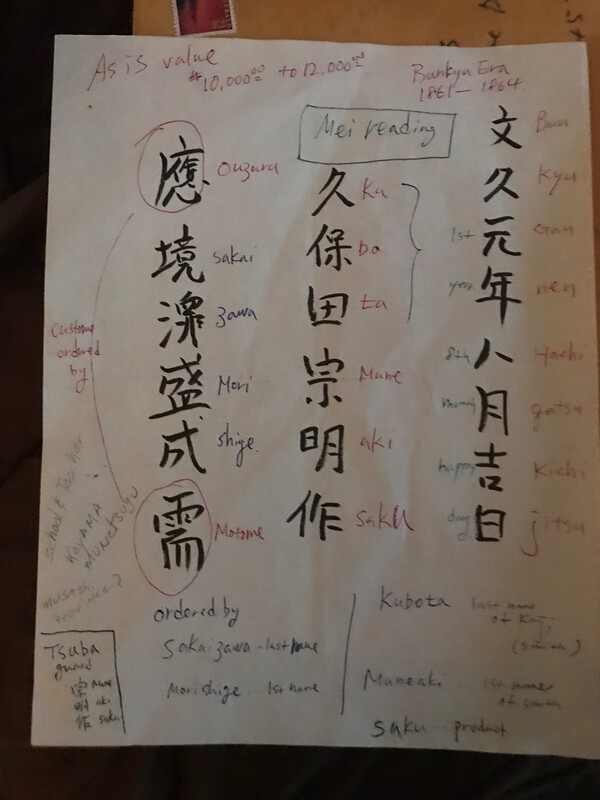 As is value
$10,000.00 to 12,000.00
Bunkyu Era
1861 - 1864
Mei reading
文久元年八月吉日
Bun
Kyu
Gan
nen
Hachi
gatsu
Kichi
jitsu
1st
year
8th
happy
day
久保田宗明作
Ku
bo
ta
Mune
aki
saku
應境澤盛成需
Ouzuru
sakai
zawa
Mori
shige
Motome
Custome
ordered
by
School & Teacher
KOYAMA
MUNETSUGU
Musashi
province?
ordered by
Sakaizawa - last name
Morishige ... 1st name
Kubota last name
of Kaji
(smith)
Muneaki ... 1st name
of
saku ... product
Tsuba
guard
宗 Mune
明 aki
作 saku